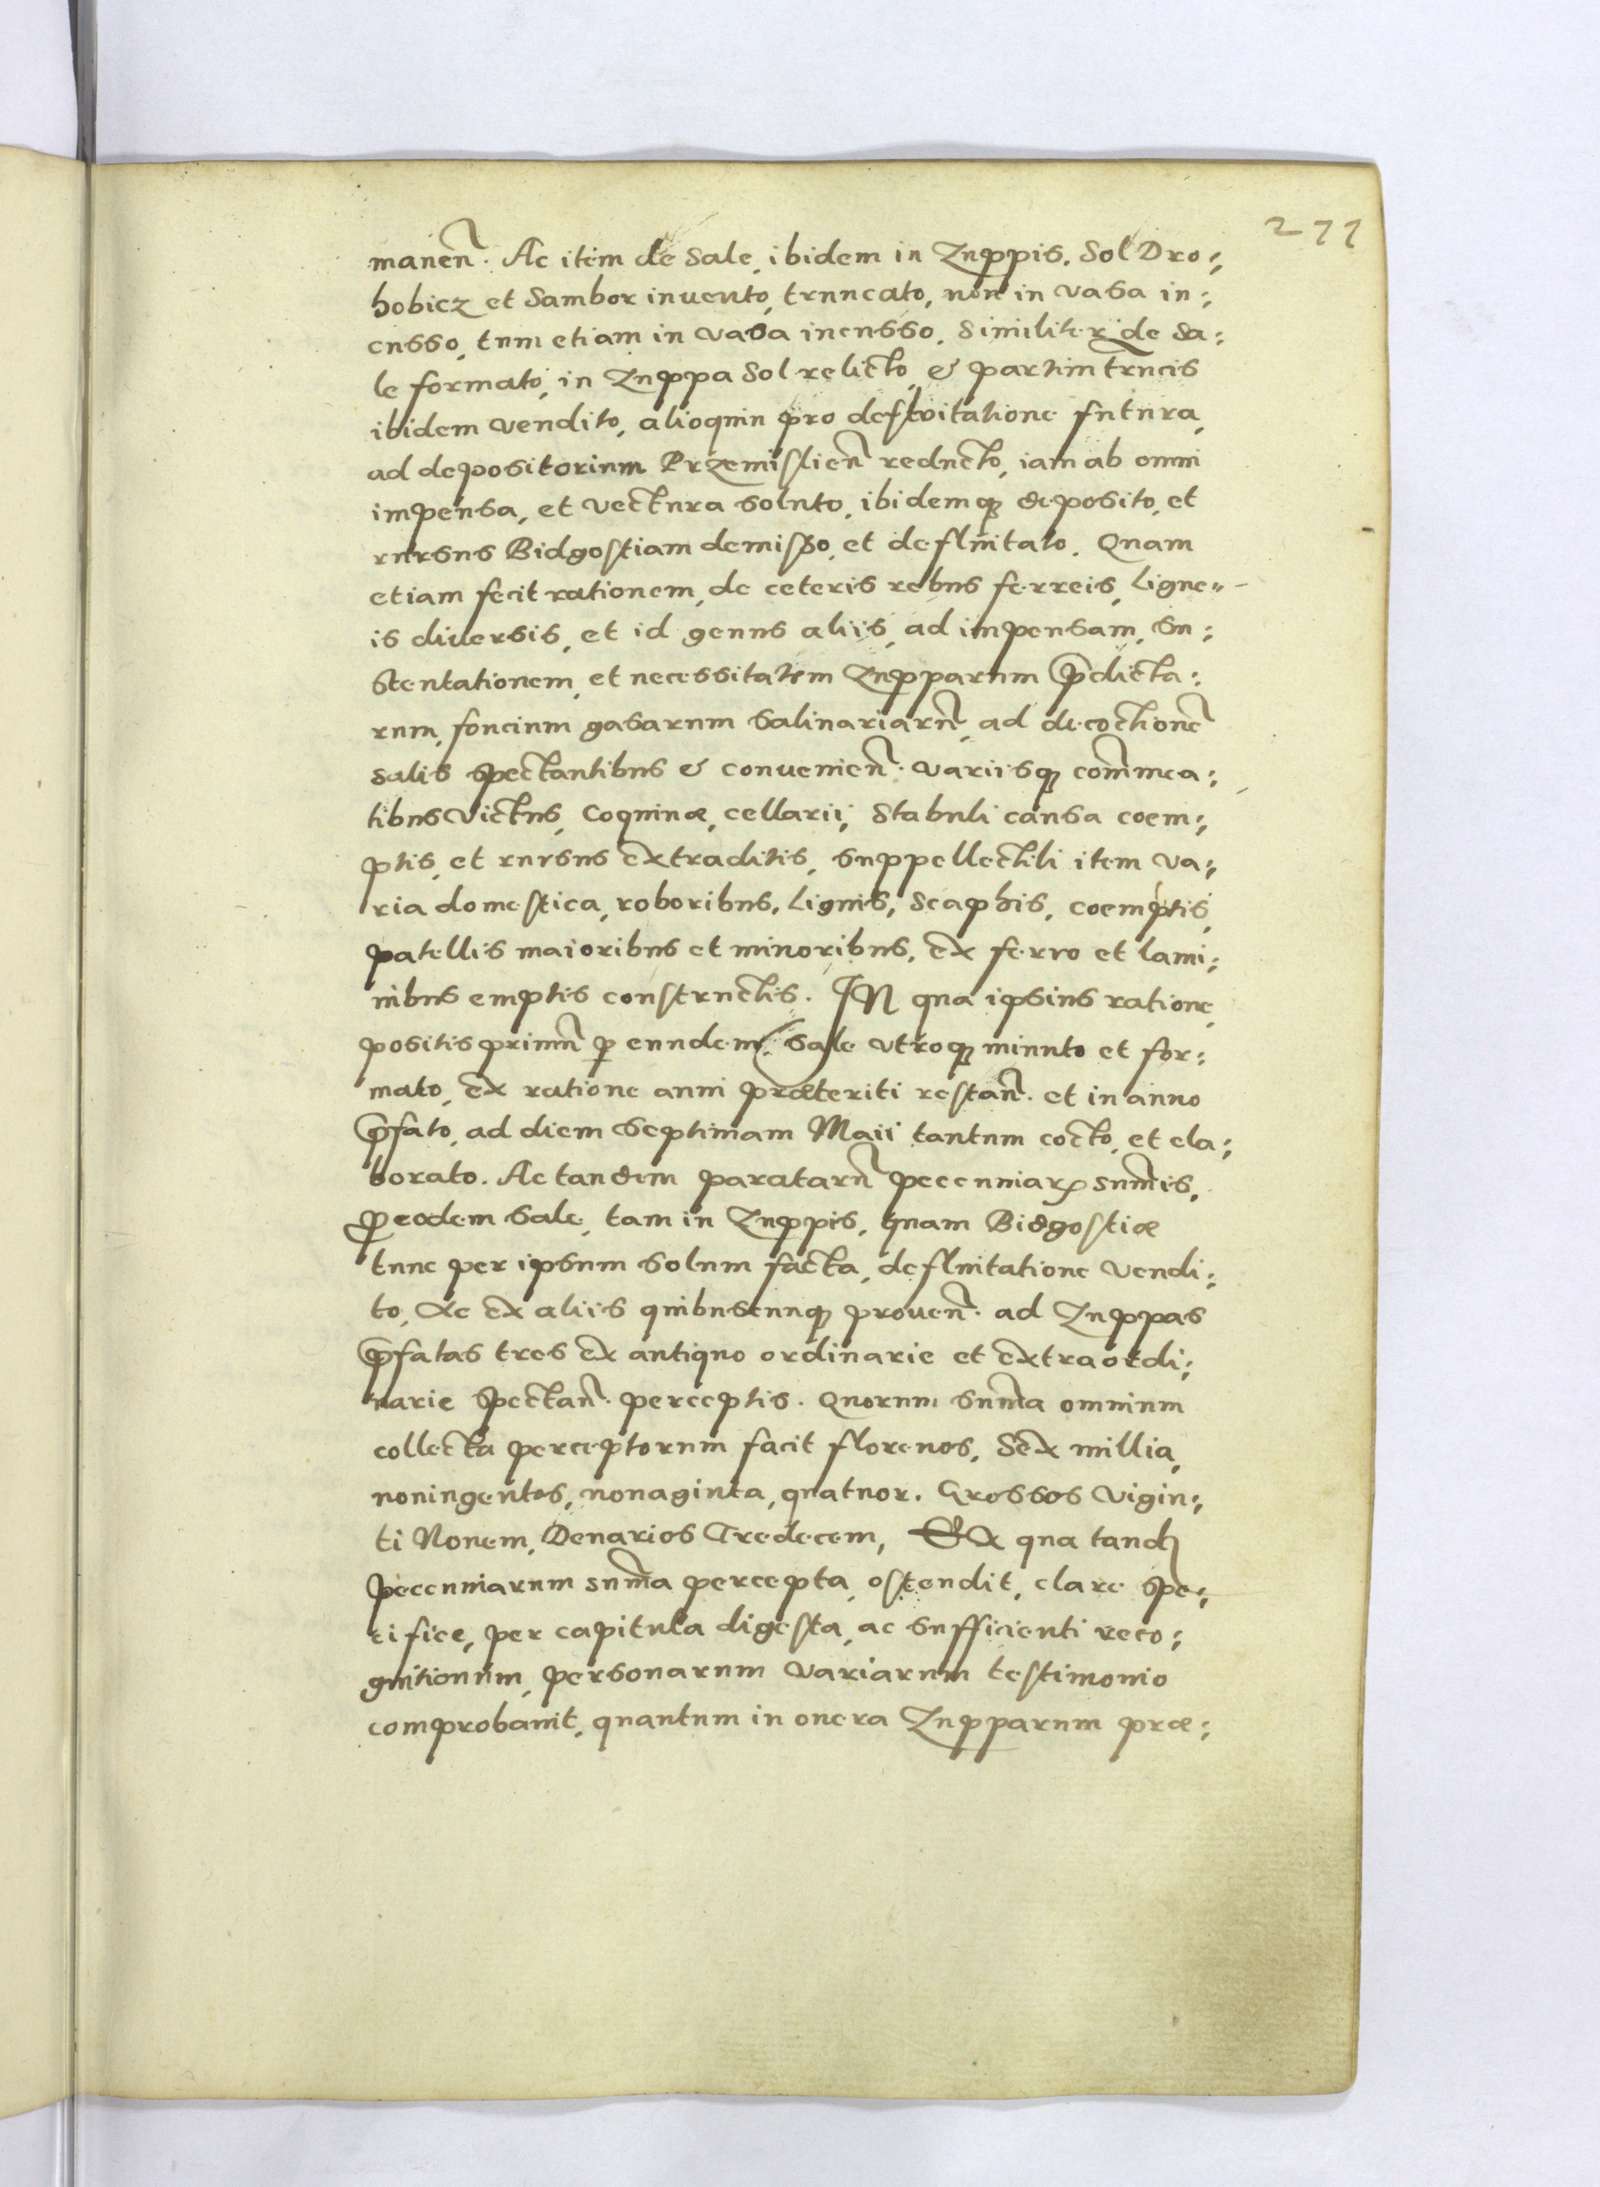 277
manen̄. Ac item de Sale, ibidem in Zuppis. Sol Dro:,
hobicz et Sambor inuento, truncato, non in vasa in:,
cusso, tum etiam in vasa incusso. Similiter de Sa:
le formato, in Zuppa Sol relicto, & partim tr̄ncis
ibidem vendito, alioquin pro defluitatione futura,
ad depositorium Przemislien̄ reducto, iam ab omni
impensa, et vectura soluto, ibidemq₃ deposito, et
rursus Bidgostiam demisso, et defluitato. Quam
etiam fecit rationem, de ceteris rebus ferreis, Ligne„
is diuersis, et id genus aliis, ad impensam, Su:,
stentationem, et necessitatem Zupparum p̄dicta:,
rum, foncium gasarum Salinariarū, ad decoctionē
salis spectantibus & conuenien̄. variisq₃ com̄mea:,
tibus victus, Coquinæ, cellarii, Stabuli causa coem:,
ptis, et rursus extraditis, Suppellectili item va:,
ria domestica, roboribus, Lignis, Scaphis, coemptis,
patellis maioribus et minoribus, ex ferro et lami:,
nibus emptis constructis. IN qua ipsius ratione,
positis primū ꝑ eundem, Sale vtroq₃ minuto et for:,
mato, ex ratione anni præteriti restan̄. et in anno
p̄fato, ad diem Septimam Maii tantum cocto, et ela:,
borato. Ac tandem paratarū pecuniaꝝ sum̄is,
ꝓ eodem Sale, tam in Zuppis, quam Bidgostiæ
tunc per ipsum solum facta, defluitatione vendi:,
to, Ac ex aliis quibuscunq₃ prouen̄. ad Zuppas
p̄fatas tres ex antiquo ordinarie et extraordi:,
narie Spectan̄. perceptis. Quorum sum̄a omnium
collecta perceptorum facit florenos, Sex millia,
noningentos, nonaginta, quatuor. Grossos Vigin:,
ti Nouem, Denarios Tredecem, Ex qua tandē
pecuniarum sum̄a percepta, ostendit, clare Spe:,
cifice, per capitula digesta, ac sufficienti reco:,
gnitionum, personarum variarum testimonio
comprobauit, quantum in onera Zupparum præ:,